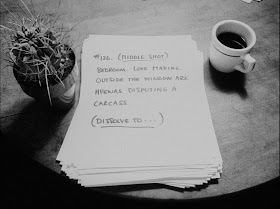 #126. (MIDDLE SHOT)
BEDROOM. LOVE MAKING.
OUTSIDE THE WINDOW ARE
HYENAS DISPUTING A
CARCASS
(DISSOLVE TO...)